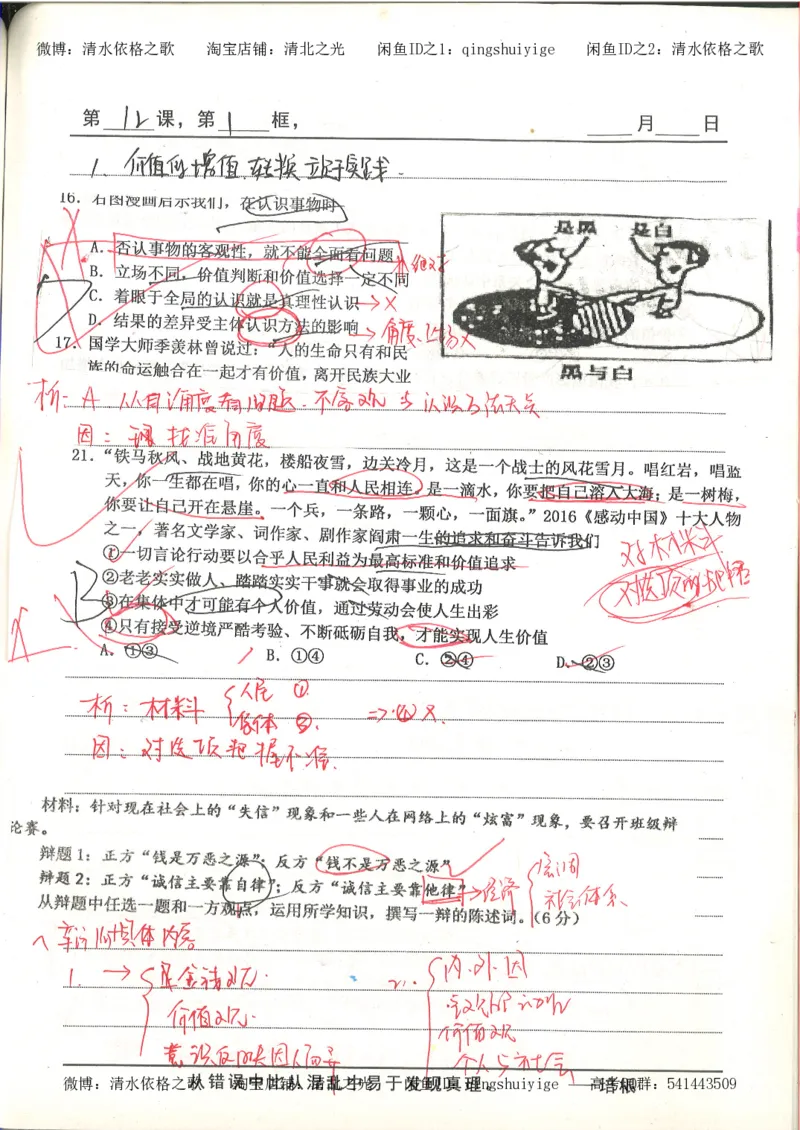 微博：清水依格之歌 淘宝店铺：清北之光 闲鱼ID之1：qingshuiyige 闲鱼ID之2：清水依格之歌
第 12 课，第 1 框， 月 日
1. 价值的增值、转换 立于实践.
16．右图漫画启示我们，在认识事物时
A．否认事物的客观性，就不能全面看问题
B．立场不同，价值判断和价值选择一定不同
C．着眼于全局的认识就是真理性认识 → X
D．结果的差异受主体认识方法的影响 → 角度、立场 X
是黑 是白
黑与白
17．国学大师季羡林曾说过：“人的生命只有和民
族的命运融合在一起才有价值，离开民族大业
析： A 从自 角度看问题．不客观
因： 找准角度
21．“铁马秋风、战地黄花，楼船夜雪，边关冷月，这是一个战士的风花雪月。唱红岩，唱监
天，你一生都在唱，你的心一直和人民相连。是一滴水，你要把自己溶入大海；是一树梅，
你要让自己开在悬崖。一个兵，一条路，一颗心，一面旗。”2016《感动中国》十大人物
之一，著名文学家、词作家、剧作家阎肃一生的追求和奋斗告诉我们
①一切言论行动要以合乎人民利益为最高标准和价值追求
②老老实实做人、踏踏实实干事就会取得事业的成功
③在集体中才可能有个人价值，通过劳动会使人生出彩
④只有接受逆境严酷考验、不断砥砺自我，才能实现人生价值
对材料
对选项的把握
A．①③ B．①④ C．②④ D．②③
析：材料 人民 ①
集体 ③. => ④ X.
因：对选项把握不准.
材料：针对现在社会上的“失信”现象和一些人在网络上的“炫富”现象，要召开班级辩
论赛。
辩题1：正方“钱是万恶之源”；反方“钱不是万恶之源”
辩题2：正方“诚信主要靠自律”；反方“诚信主要靠他律” → 经济
社会体系
从辩题中任选一题和一方观点，运用所学知识，撰写一辩的陈述词。（6分）
具体内容
1. → 金钱观.
价值观.
2. 内、外因
价值观
个人与社会
从错误中比从混乱中易于发现真理。 ——培根
微博：清水依格之歌 淘宝店铺：清北之光 闲鱼ID：qingshuiyige 高考QQ群：541443509